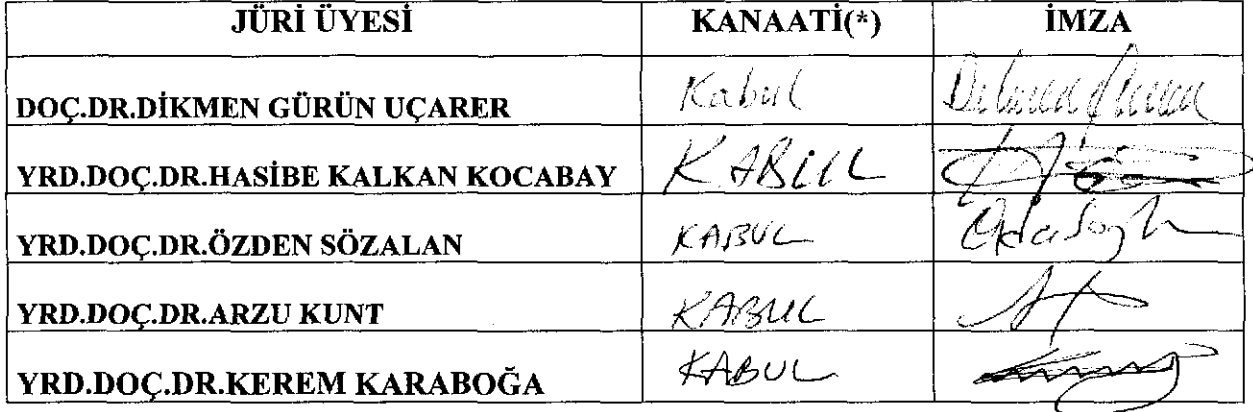 JÜRİ ÜYESİ KANAATİ(*) İMZA
DOÇ.DR.DİKMEN GÜRÜN UÇARER Kabul
YRD.DOÇ.DR.HASİBE KALKAN KOCABAY KABUL
YRD.DOÇ.DR.ÖZDEN SÖZALAN KABUL
YRD.DOÇ.DR.ARZU KUNT KABUL
YRD.DOÇ.DR.KEREM KARABOĞA KABUL